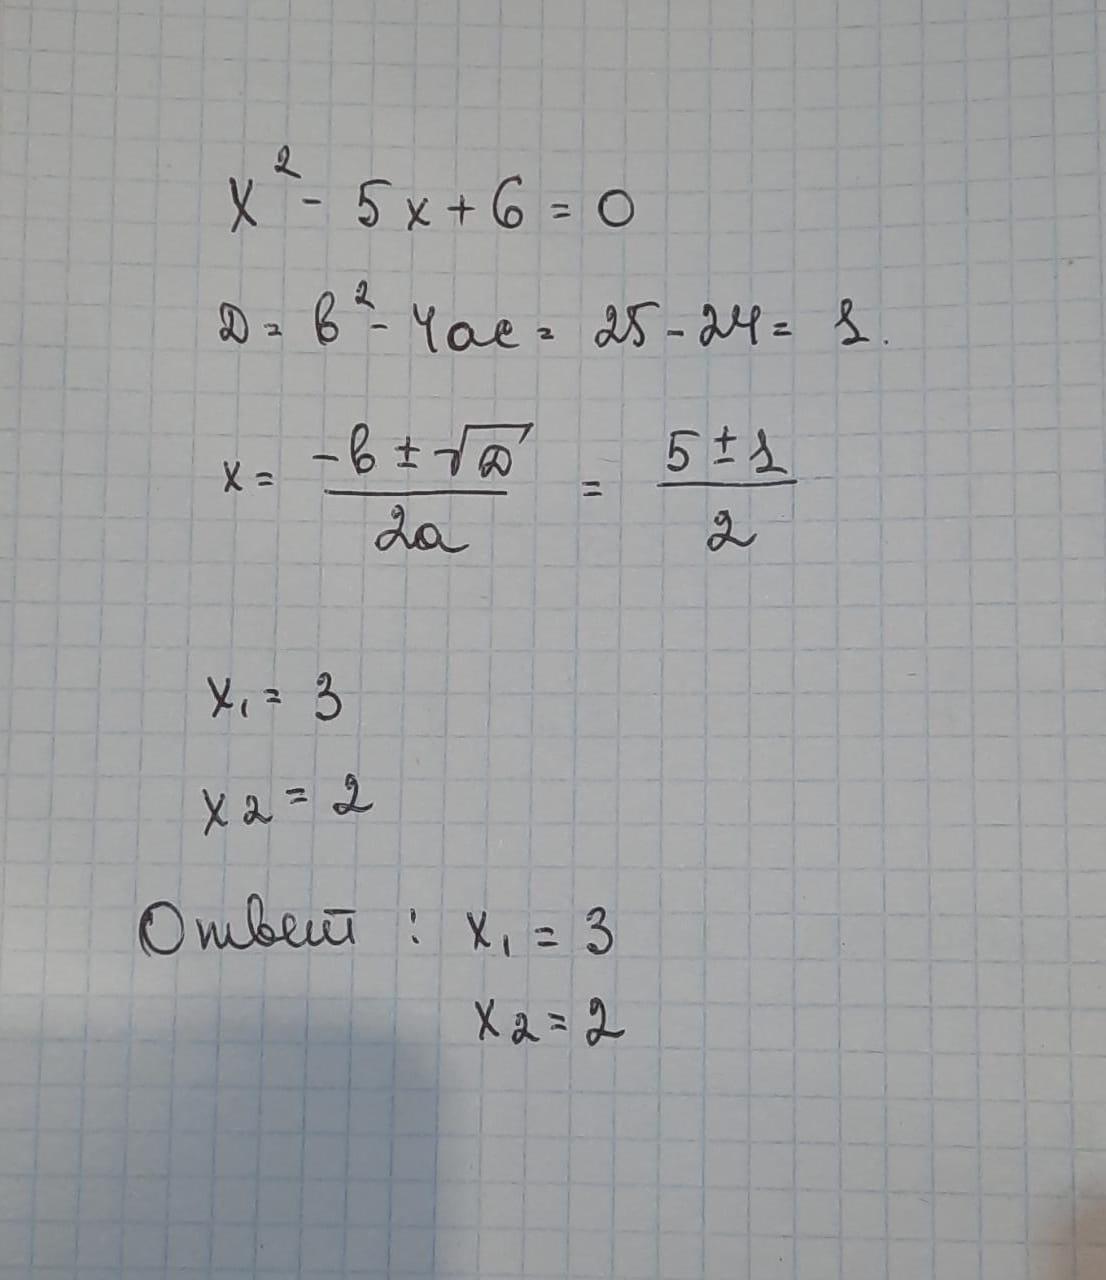 x² - 5x + 6 = 0
D = b² - 4ac = 25 - 24 = 1.
x = (-b ± √D) / 2a = (5 ± 1) / 2
x₁ = 3
x₂ = 2
Ответ : x₁ = 3
x₂ = 2